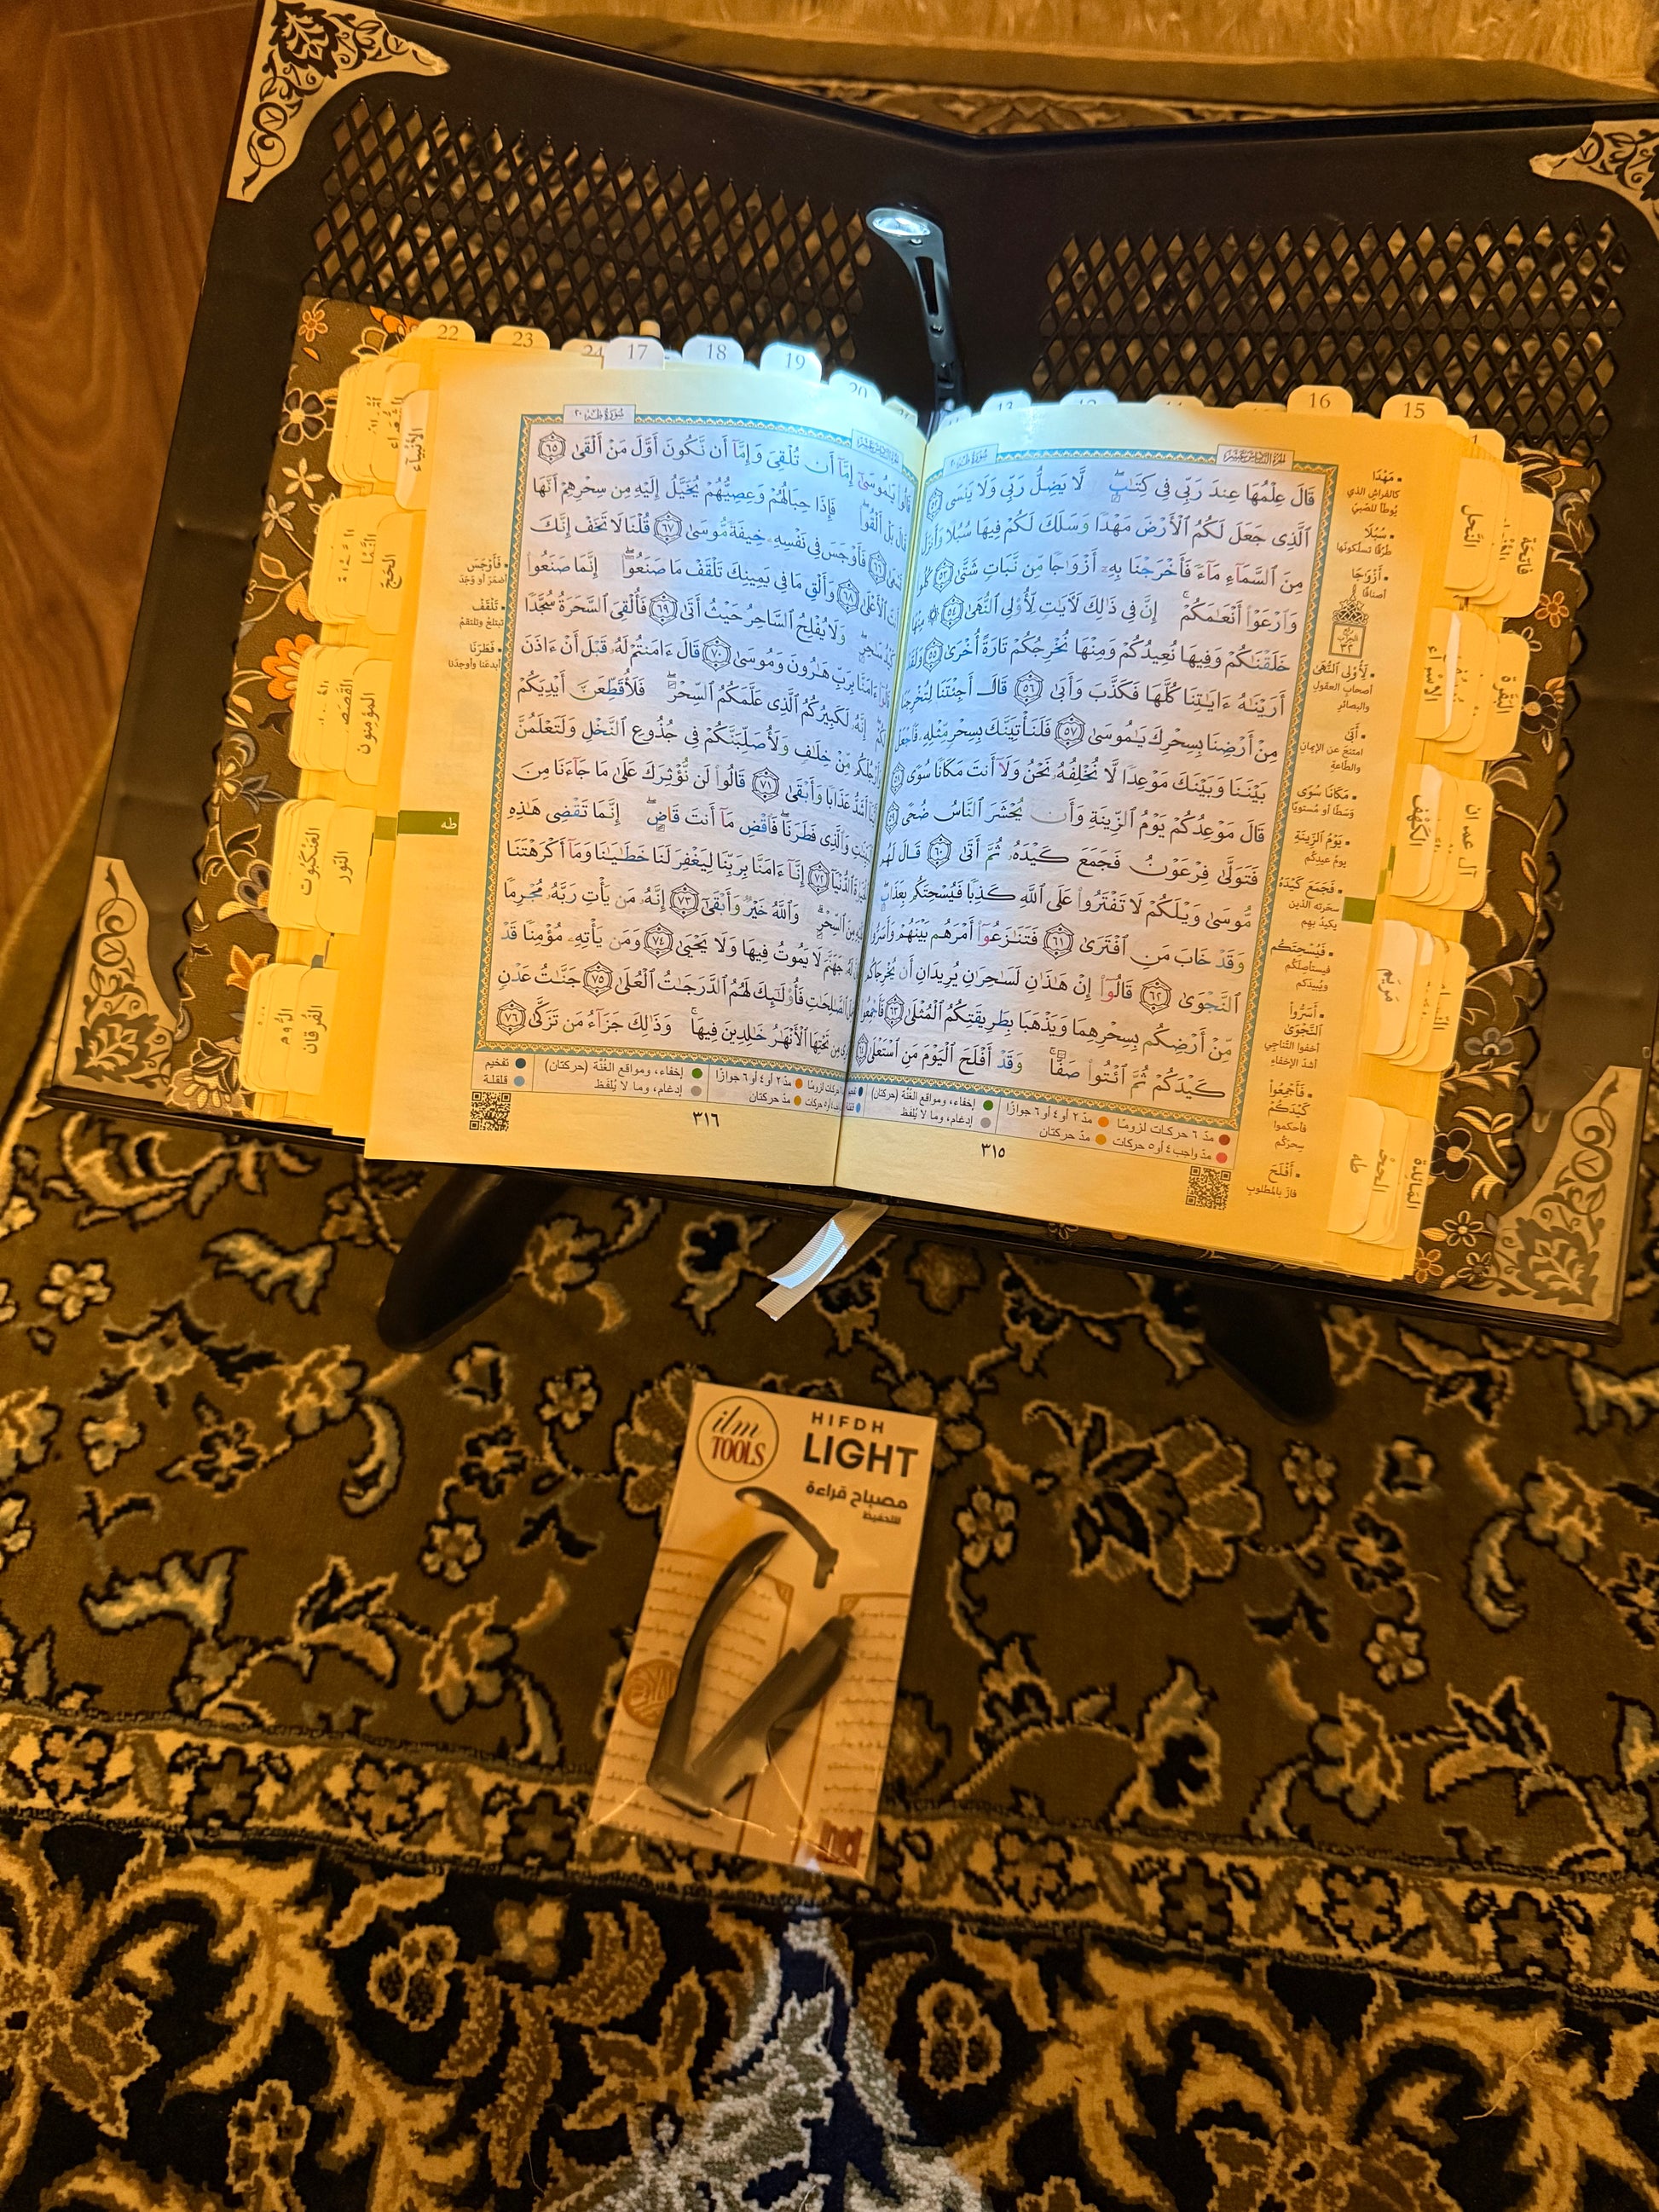 22
23
17
18
19
16
15
قَالَ عِلْمُهَا عِندَ رَبِّي فِي كِتَٰبٍ ۖ لَا يَضِلُّ رَبِّي وَلَا يَنسَى ٥٢
ٱلَّذِي جَعَلَ لَكُمُ ٱلْأَرْضَ مَهْدًا وَسَلَكَ لَكُمْ فِيهَا سُبُلًا وَأَنزَلَ
مِنَ ٱلسَّمَآءِ مَآءً فَأَخْرَجْنَا بِهِۦٓ أَزْوَٰجًا مِّن نَّبَاتٍ شَتَّىٰ ٥٣ كُلُوا۟
وَٱرْعَوْا۟ أَنْعَٰمَكُمْ ۗ إِنَّ فِي ذَٰلِكَ لَأٓيَٰتٍ لِّأُو۟لِي ٱلنُّهَىٰ ٥٤ مِنْهَا
خَلَقْنَٰكُمْ وَفِيهَا نُعِيدُكُمْ وَمِنْهَا نُخْرِجُكُمْ تَارَةً أُخْرَىٰ ٥٥ وَلَقَدْ
أَرَيْنَٰهُ ءَايَٰتِنَا كُلَّهَا فَكَذَّبَ وَأَبَىٰ ٥٦ قَالَ أَجِئْتَنَا لِتُخْرِجَنَا
مِنْ أَرْضِنَا بِسِحْرِكَ يَٰمُوسَىٰ ٥٧ فَلَنَأْتِيَنَّكَ بِسِحْرٍ مِّثْلِهِۦ فَٱجْعَلْ
بَيْنَنَا وَبَيْنَكَ مَوْعِدًا لَّا نُخْلِفُهُۥ نَحْنُ وَلَآ أَنتَ مَكَانًا سُوًى ٥٨
قَالَ مَوْعِدُكُمْ يَوْمُ ٱلزِّينَةِ وَأَن يُحْشَرَ ٱلنَّاسُ ضُحًى ٥٩
فَتَوَلَّىٰ فِرْعَوْنُ فَجَمَعَ كَيْدَهُۥ ثُمَّ أَتَىٰ ٦٠ قَالَ لَهُم
مُّوسَىٰ وَيْلَكُمْ لَا تَفْتَرُوا۟ عَلَى ٱللَّهِ كَذِبًا فَيُسْحِتَكُم بِعَذَابٍ
وَقَدْ خَابَ مَنِ ٱفْتَرَىٰ ٦١ فَتَنَٰزَعُوٓا۟ أَمْرَهُم بَيْنَهُمْ وَأَسَرُّوا۟
ٱلنَّجْوَىٰ ٦٢ قَالُوٓا۟ إِنْ هَٰذَٰنِ لَسَٰحِرَٰنِ يُرِيدَانِ أَن يُخْرِجَاكُم
مِّنْ أَرْضِكُم بِسِحْرِهِمَا وَيَذْهَبَا بِطَرِيقَتِكُمُ ٱلْمُثْلَىٰ ٦٣ فَأَجْمِعُوا۟
كَيْدَكُمْ ثُمَّ ٱئْتُوا۟ صَفًّا ۚ وَقَدْ أَفْلَحَ ٱلْيَوْمَ مَنِ ٱسْتَعْلَىٰ ٦٤
مدّ ٦ حركات لزومًا
مدّ ٢ أو ٤ أو ٦ جوازًا
إخفاء، ومواقع الغُنّة (حركتان)
مدّ واجب ٤ أو ٥ حركات
مدّ حركتان
إدغام، وما لا يُلفظ
٣١٥
مَهْدًا
كالفراشِ الذي
يُوطّأ للصّبيّ
سُبُلًا
طُرُقًا تسلُكونَها
أَزْوَٰجًا
أصنافًا
لِأُو۟لِي ٱلنُّهَىٰ
أصحابِ العقولِ
والبصائرِ
أَبَىٰ
امتنعَ عن الإيمانِ
والطّاعةِ
مَكَانًا سُوًى
وسَطًا أو مُستويًا
يَوْمُ ٱلزِّينَةِ
يومُ عيدِكُم
فَجَمَعَ كَيْدَهُۥ
سحَرَته الذين
يكيدُ بهم
فَيُسْحِتَكُم
فيستأصِلَكم
ويُبيدَكم
أَسَرُّوا۟
ٱلنَّجْوَىٰ
أخفَوا التّناجي
أشدّ الإخفاءِ
فَأَجْمِعُوا۟
كَيْدَكُمْ
فأحكموا
سِحرَكُم
أَفْلَحَ
فازَ بالمطلوبِ
سُورَةُ طه ٢٠
قَالُوا۟ يَٰمُوسَىٰٓ إِمَّآ أَن تُلْقِيَ وَإِمَّآ أَن نَّكُونَ أَوَّلَ مَنْ أَلْقَىٰ ٦٥
قَالَ بَلْ أَلْقُوا۟ ۖ فَإِذَا حِبَالُهُمْ وَعِصِيُّهُمْ يُخَيَّلُ إِلَيْهِ مِن سِحْرِهِمْ أَنَّهَا
تَسْعَىٰ ٦٦ فَأَوْجَسَ فِي نَفْسِهِۦ خِيفَةً مُّوسَىٰ ٦٧ قُلْنَا لَا تَخَفْ إِنَّكَ
أَنتَ ٱلْأَعْلَىٰ ٦٨ وَأَلْقِ مَا فِي يَمِينِكَ تَلْقَفْ مَا صَنَعُوٓا۟ ۖ إِنَّمَا صَنَعُوا۟
كَيْدُ سَٰحِرٍ ۖ وَلَا يُفْلِحُ ٱلسَّاحِرُ حَيْثُ أَتَىٰ ٦٩ فَأُلْقِيَ ٱلسَّحَرَةُ سُجَّدًا
قَالُوٓا۟ ءَامَنَّا بِرَبِّ هَٰرُونَ وَمُوسَىٰ ٧٠ قَالَ ءَامَنتُمْ لَهُۥ قَبْلَ أَنْ ءَاذَنَ
لَكُمْ ۖ إِنَّهُۥ لَكَبِيرُكُمُ ٱلَّذِي عَلَّمَكُمُ ٱلسِّحْرَ ۖ فَلَأُقَطِّعَنَّ أَيْدِيَكُمْ
وَأَرْجُلَكُم مِّنْ خِلَٰفٍ وَلَأُصَلِّبَنَّكُمْ فِي جُذُوعِ ٱلنَّخْلِ وَلَتَعْلَمُنَّ
أَيُّنَآ أَشَدُّ عَذَابًا وَأَبْقَىٰ ٧١ قَالُوا۟ لَن نُّؤْثِرَكَ عَلَىٰ مَا جَآءَنَا مِنَ
ٱلْبَيِّنَٰتِ وَٱلَّذِي فَطَرَنَا ۖ فَٱقْضِ مَآ أَنتَ قَاضٍ ۖ إِنَّمَا تَقْضِي هَٰذِهِ
ٱلْحَيَوٰةَ ٱلدُّنْيَآ ٧٢ إِنَّآ ءَامَنَّا بِرَبِّنَا لِيَغْفِرَ لَنَا خَطَٰيَٰنَا وَمَآ أَكْرَهْتَنَا
عَلَيْهِ مِنَ ٱلسِّحْرِ ۗ وَٱللَّهُ خَيْرٌ وَأَبْقَىٰٓ ٧٣ إِنَّهُۥ مَن يَأْتِ رَبَّهُۥ مُجْرِمًا
فَإِنَّ لَهُۥ جَهَنَّمَ لَا يَمُوتُ فِيهَا وَلَا يَحْيَىٰ ٧٤ وَمَن يَأْتِهِۦ مُؤْمِنًا قَدْ
عَمِلَ ٱلصَّٰلِحَٰتِ فَأُو۟لَٰٓئِكَ لَهُمُ ٱلدَّرَجَٰتُ ٱلْعُلَىٰ ٧٥ جَنَّٰتُ عَدْنٍ
تَجْرِي مِن تَحْتِهَا ٱلْأَنْهَٰرُ خَٰلِدِينَ فِيهَا ۚ وَذَٰلِكَ جَزَآءُ مَن تَزَكَّىٰ ٧٦
مدّ ٢ أو ٤ أو ٦ جوازًا
إخفاء، ومواقع الغُنّة (حركتان)
تفخيم
مدّ حركتان
إدغام، وما لا يُلفظ
قلقلة
٣١٦
فَأَوْجَسَ
أضمَرَ أو وَجَدَ
تَلْقَفْ
تبتلِعُ وتلتقِمُ
فَطَرَنَا
أبدعَنا وأوجدَنا
طه
الأنبياء
الشعراء
الحج
النمل
المؤمنون
القصص
النور
العنكبوت
الفرقان
الروم
فاتحة
النحل
البقرة
الإسراء
آل عمران
الكهف
مريم
المائدة
الحجر
طه
ilm
TOOLS
HIFDH
LIGHT
مصباح قراءة
للتحفيظ